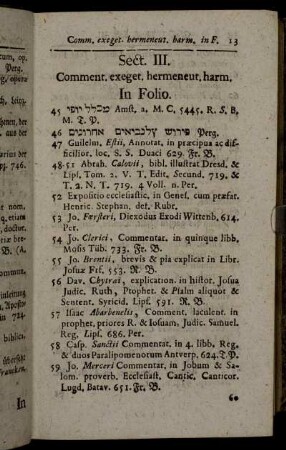 Comm. exeget. hermeneut. harm. in F. 13
Sect. III.
Comment. exeget. hermeneut. harm.
In Folio.
45 מכלל יופי Amst. a. M. C. 5445. R. S. B.
M. T. P.
46 פירוש לנביאים אחרונים Perg.
47 Guilelm. Estii, Annotat. in præcipua ac dif-
ficilior. loc. S. S. Duaci 629. Fr. B.
48-51 Abrah. Calovii, bibl. illustrat Dresd. &
Lips. Tom. 2. V. T. Edit. Secund. 719. &
T. 2. N. T. 719. 4 Voll. n. Per.
52 Expositio ecclesiastic. in Genes. cum præfat.
Henric. Stephan. det. Rubr.
53 Jo. Færsteri, Diexodus Exodi Wittenb. 614.
Per.
54 Jo. Clerici, Commentar. in quinque libb.
Mosis Tüb. 733. Fr. B.
55 Jo. Brentii, brevis & pia explicat in Libr.
Josuæ Frf. 553. R. B.
56 Dav. Chytræi, explication. in histor. Josua
Judic. Ruth, Prophet & Psalm aliquot &
Sentent. Syricid. Lips. 591. R. B.
57 Isaac Abarbenelis, Comment. laculent. in
prophet. priores R. & Iosuam, Judic. Samuel.
Reg. Lips. 686. Per.
58 Casp. Sanctii Commentat. in 4. libb. Reg.
& duos Paralipomenorum Antverp. 624. T. P.
59 Jo. Merceri Commentar. in Jobum & Sa-
lom. proverb. Ecclesiast, Cantic. Canticor.
Lugd. Batav. 651. Fr. B.
60